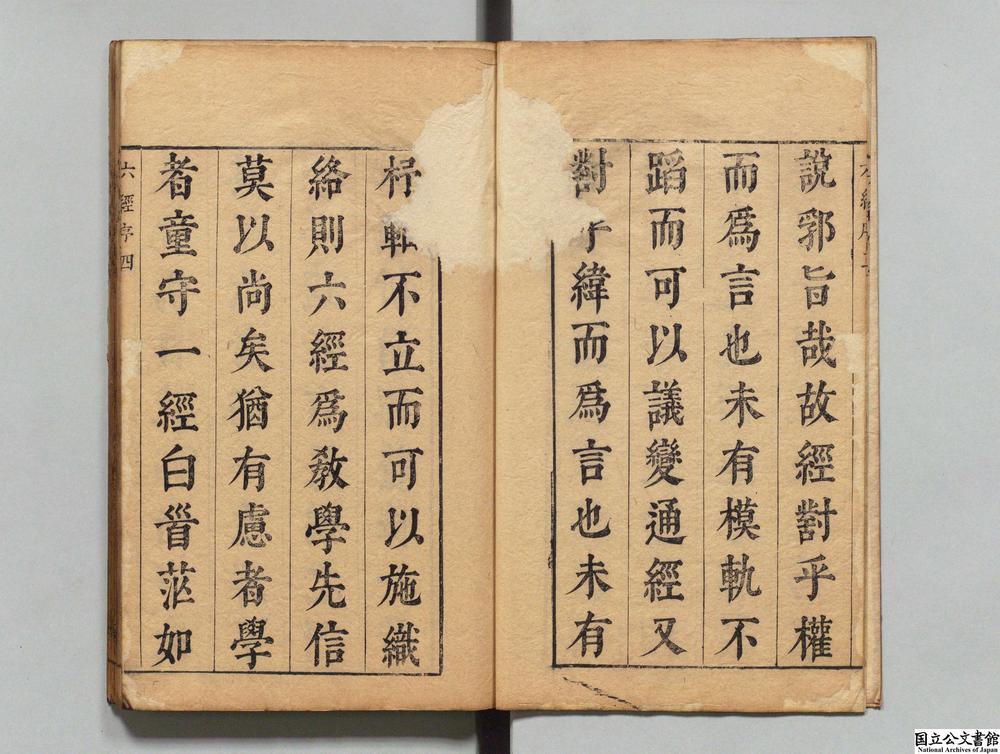 說郛旨哉故經對乎權
而爲言也未有模軌不
蹈而可以議變通經又
對乎緯而爲言也未有
杼軸不立而可以施織
絡則六經爲教學先信
莫以尚矣猶有慮者學
者童守一經白首茫如
六經序 四
国立公文書館
National Archives of Japan